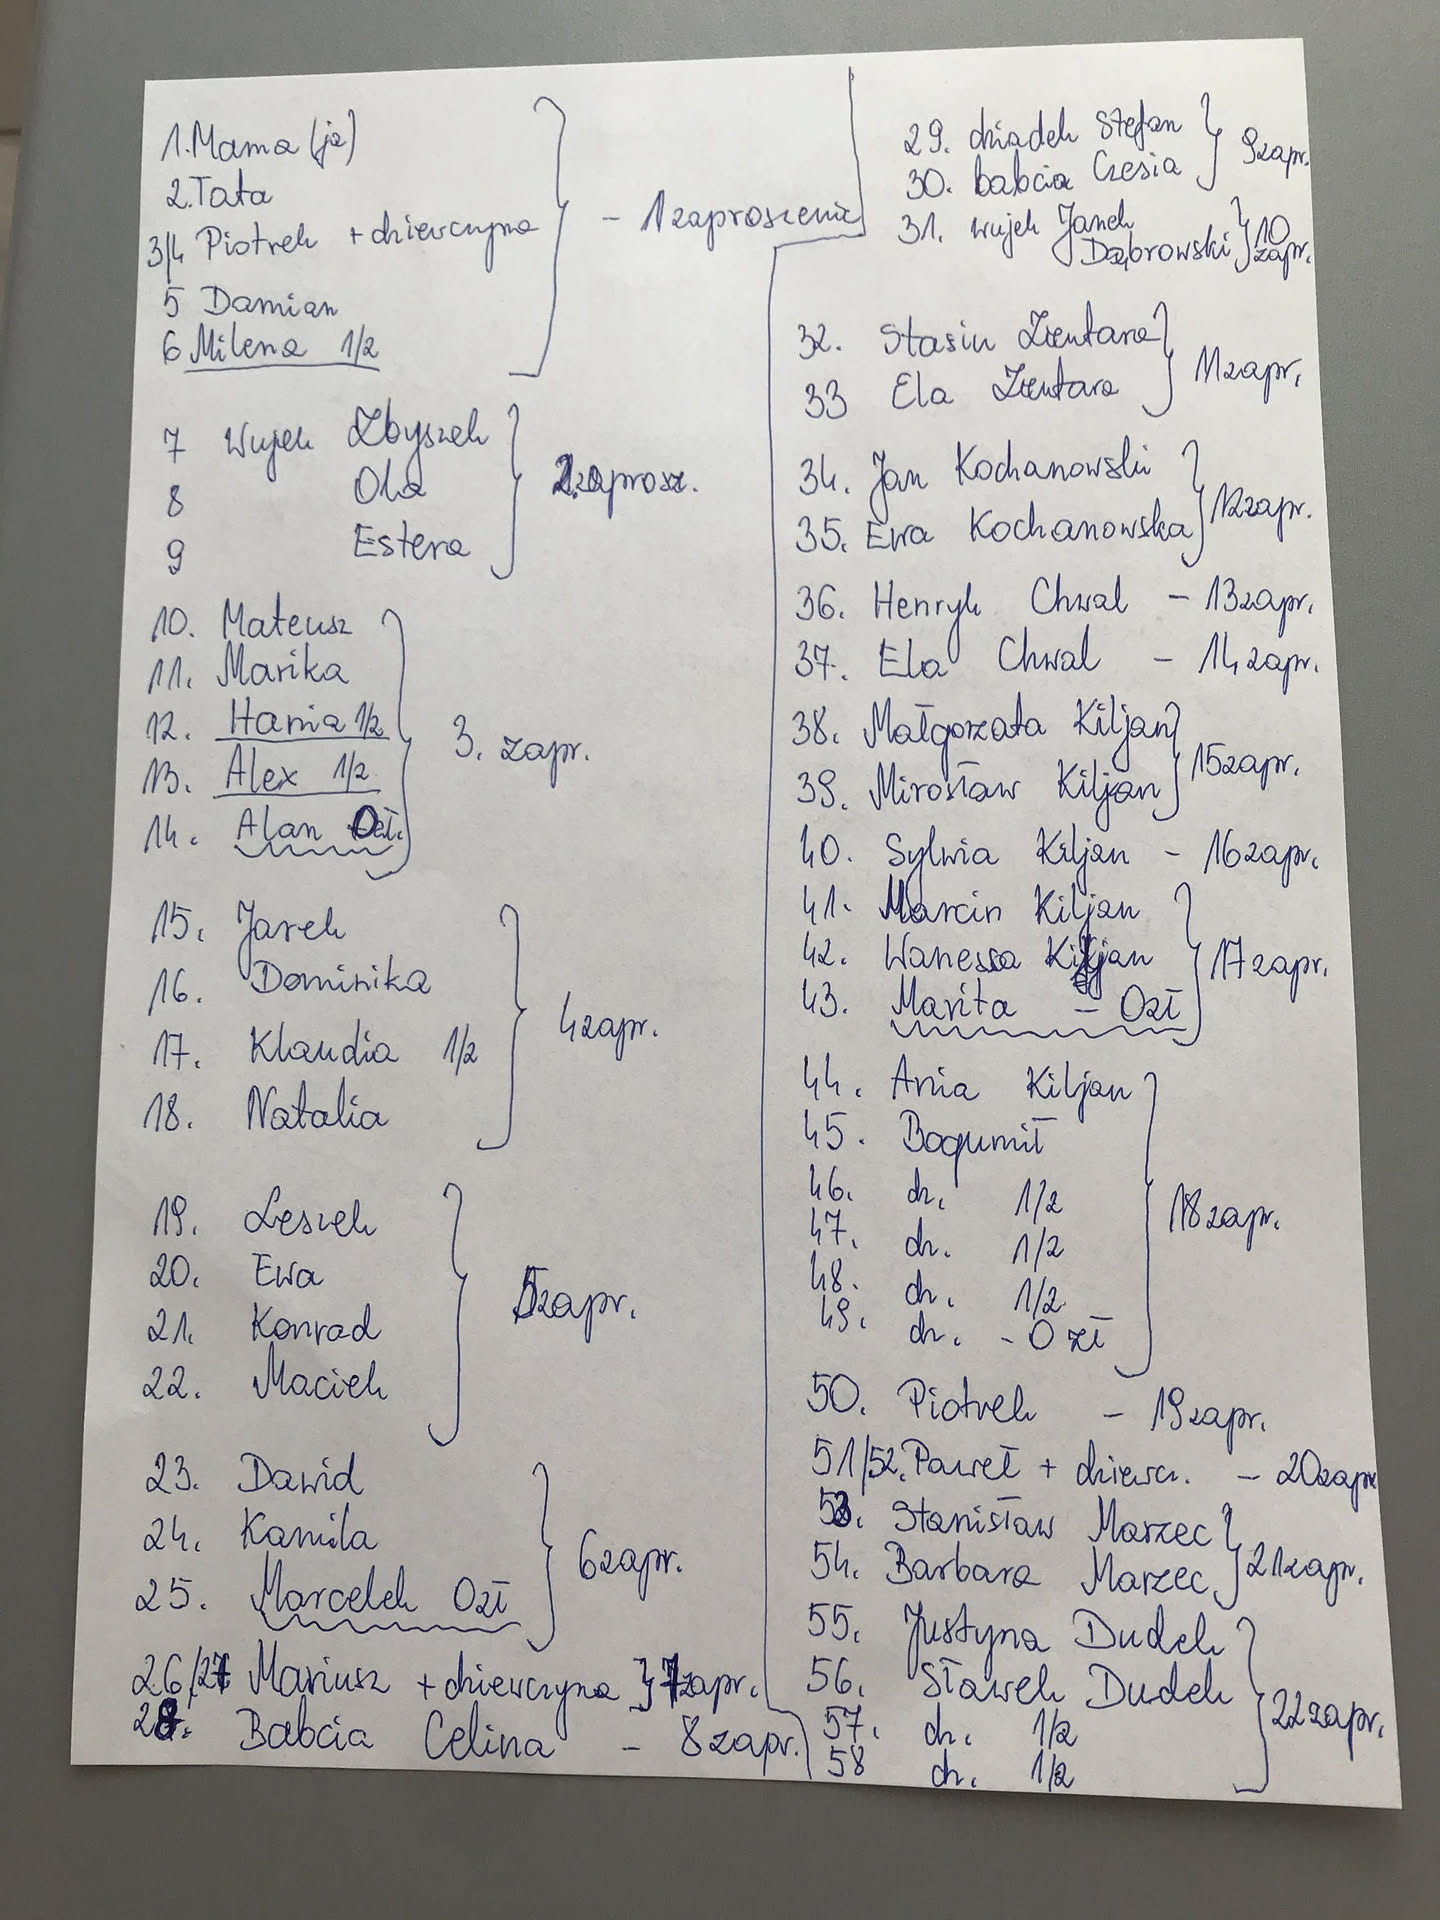 1. Mama (ja)
2. Tata
3/4 Piotrek + dziewczyna - 1 zaproszenie
5 Damian
6 Milena 1/2
7 Wujek Zbyszek
8 Ola 2 zaprosz.
9 Estera
10. Mateusz
11. Marika
12. Hania 1/2
3. zapr.
13. Alex 1/2
14. Alan 0zł.
15. Jarek
16. Dominika
4 zapr.
17. Klaudia 1/2
18. Natalia
19. Leszek
20. Ewa
5 zapr.
21. Konrad
22. Maciek
23. Dawid
24. Kamila
6 zapr.
25. Marcelek 0zł
26/27 Mariusz + dziewczyna } 7 zapr.
28. Babcia Celina - 8 zapr.
29. dziadek Stefan
9 zapr.
30. babcia Czesia
31. wujek Janek
Dąbrowski
10 zapr.
32. Stasiu Zientara
11 zapr.
33 Ela Zientara
34. Jan Kochanowski
12 zapr.
35. Ewa Kochanowska
36. Henryk Chwal - 13 zapr.
37. Ela Chwal - 14 zapr.
38. Małgorzata Kiljan
15 zapr.
39. Mirosław Kiljan
40. Sylwia Kiljan - 16 zapr.
41. Marcin Kiljan
42. Wanessa Kiljan 17 zapr.
43. Marita - 0zł
44. Ania Kiljan
45. Bogumił
46. dz. 1/2
18 zapr.
47. dz. 1/2
48. dz. 1/2
49. dz. - 0 zł
50. Piotrek - 19 zapr.
51/52. Paweł + dziewcz. - 20 zapr
53. Stanisław Marzec
21 zapr.
54. Barbara Marzec
55. Justyna Dudek
56. Sławek Dudek
22 zapr.
57. dz. 1/2
58 dz. 1/2